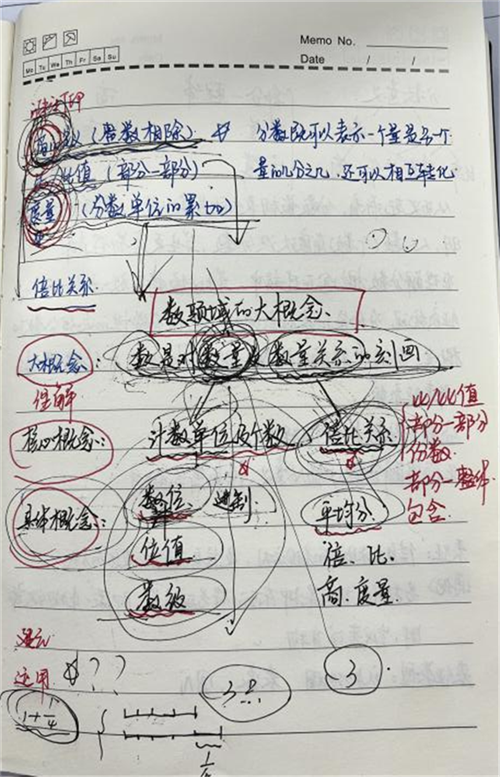 Memo No.
Mo Tu We Th Fr Sa Su
Date / /
(整数相除) 分数既可以表示一个量是另一个
比值 (部分—部分) 量的几分之几,还可以相互转化.
度量 (分数单位的累加)
倍比关系
数领域的大概念.
大概念: 数是对数量及数量关系的刻画
理解
核心概念: 计数单位及个数、倍比关系
比/比值
部分—部分
分数
部分—整体
包含
具体概念: 数位 进制 平均分
位值 倍、比
数级 商、度量
运用 ??
1+1/4
3